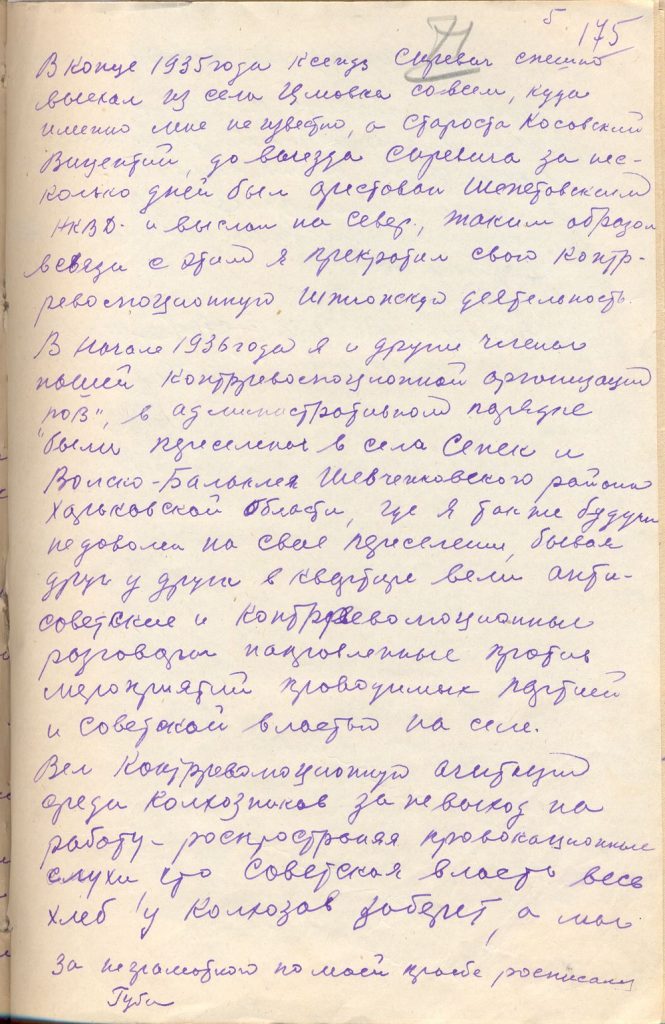 б 175
71
В конце 1935 года ксендз Сиревич спешно
выехал из села Цмовка совсем, куда
именно мне не известно, а староста Косовский
Вицентий, до выезда Сиревича за нес-
колько дней был арестован Шепетовским
НКВД. и выслан на север, таким образом
в связи с этим я прекратил свою контр-
революционную шпионскую деятельность.
В начале 1936 года я и другие члены
нашей контрреволюционной организации
"ПОВ", в административном порядке
были переселены в села Сенек и
Волско-Балаклея Шевченковского района
Харьковской области, где я также будучи
недоволен на свое переселение, бывая
друг у друга в квартире вели анти-
советские и контрреволюционные
разговоры направленные против
мероприятий проводимых партией
и советской властью на селе.
Вел контрреволюционную агитацию
среди колхозников за невыход на
работу - роспростроняя провокационные
слухи, что Советская власть весь
хлеб у колхозов заберет, а мы
За неграмотного по моей прозбе росписался
Губа